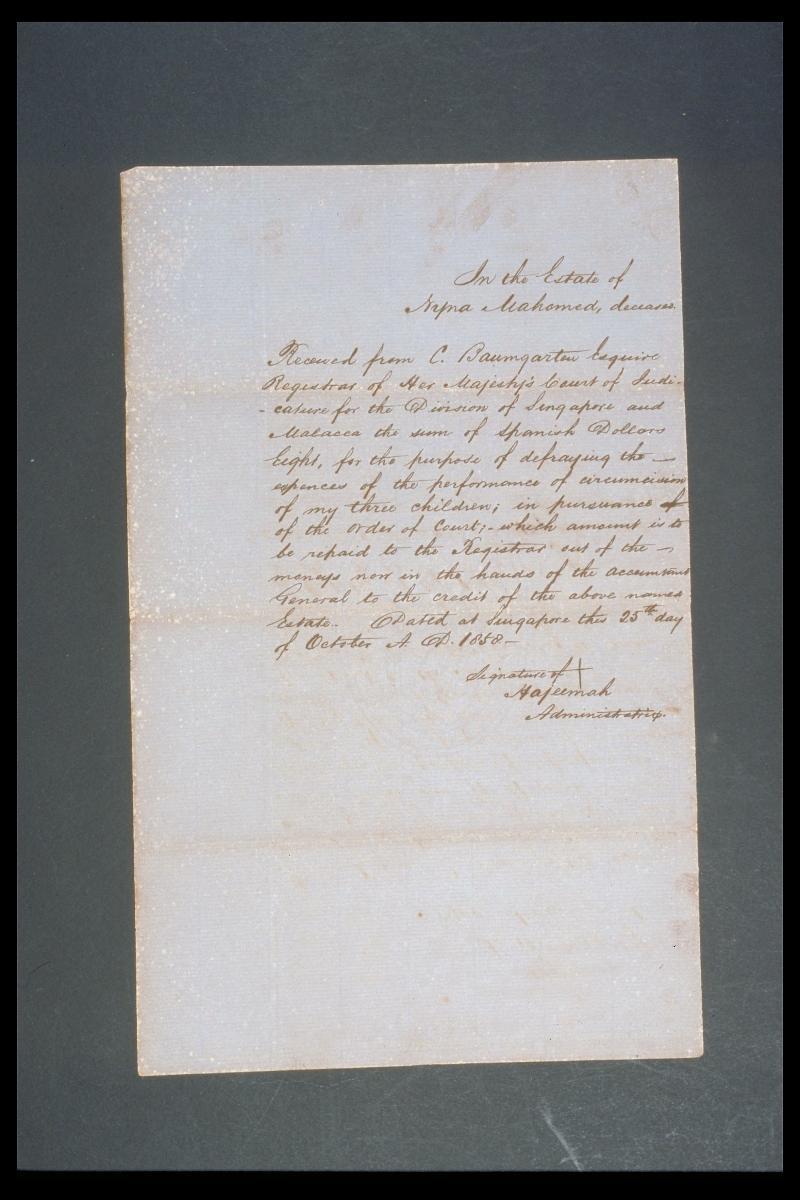 In the Estate of
Nyna Mahomed, deceased.
Received from C. Baumgarten Esquire
Registrar of Her Majesty's Court of Judi-
-cature for the Division of Singapore and
Malacca the sum of Spanish Dollars
Eight, for the purpose of defraying the —
expences of the performance of circumcision
of my three children; in pursuance of
of the order of Court; - which amount is to
be repaid to the Registrar out of the —
moneys now in the hands of the accountant
General to the credit of the above named
Estate. Dated at Singapore this 25th day
of October A. D. 1858 —
Signature of +
Hajeemah
Administratrix.